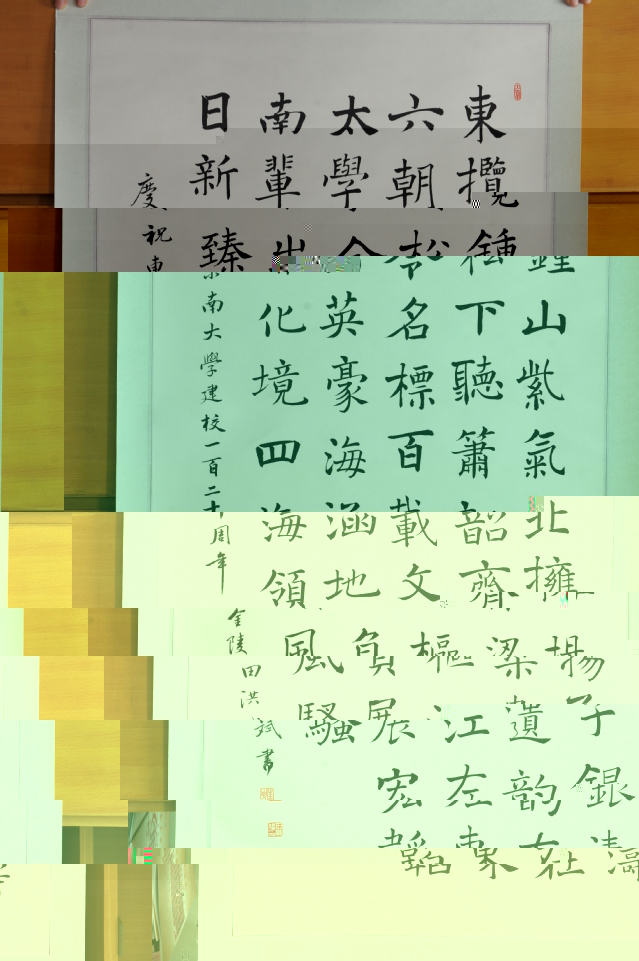 東攬鍾山紫氣北擁揚子銀濤
六朝松下聽簫韶齊梁遺韵在
太學令名標百載文樞江左東
南輩出英豪海涵地負展宏韜
日新臻化境四海領風騷
慶祝東南大學建校一百二十周年
金陵田洪斌書